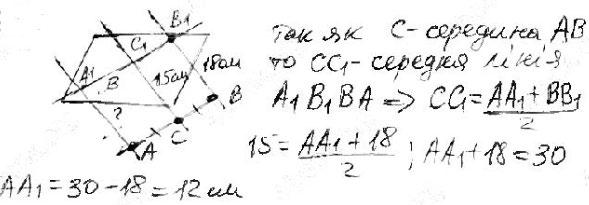 B1
C1
A1
B
15см
18см
?
B
C
A
так як C-середина AB
то CC1-середня лінія
A1B1BA => CC1 = (AA1+BB1)/2
15 = (AA1+18)/2 ; AA1+18=30
AA1=30-18=12см